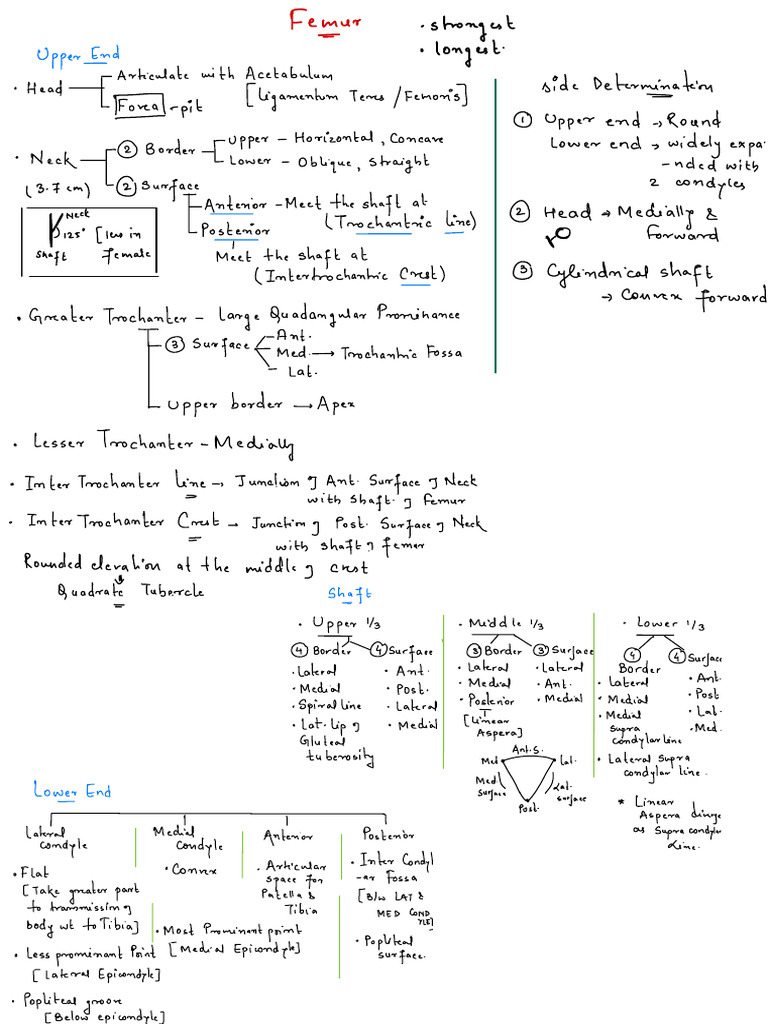 Femur
• strongest
• longest.
Upper End
• Head
Articulate with Acetabulum
Fovea - pit
[Ligamentum Teres / Femoris]
• Neck
(3.7 cm)
② Border
Upper - Horizontal, Concave
Lower - Oblique, Straight
② Surface
Anterior - Meet the shaft at
(Trochantric line)
Posterior
Meet the shaft at
(Intertrochantric Crest)
Neck
125°
Shaft
[less in
female
side Determination
① Upper end → Round
Lower end → widely expa
-nded with
2 condyles
② Head → Medially &
forward
③ Cylindrical shaft
→ Convex forward
• Greater Trochanter - large Quadangular Prominance
③ Surface
Ant.
Med. → Trochantric Fossa
Lat.
Upper border → Apex
• Lesser Trochanter - Medially
• Inter Trochanter line → Junction of Ant. Surface of Neck
with shaft. of femur
• Inter Trochanter Crest → Junction of Post. Surface of Neck
with shaft of femer
Rounded elevation at the middle of crest
Quadrate Tubercle
Shaft
• Upper 1/3
④ Border
• Lateral
• Medial
• Spiral line
• Lat. lip of
Gluteal
tuberosity
④ Surface
• Ant.
• Post.
• Lateral
• Medial
• Middle 1/3
③ Border
• Lateral
• Medial
• Posterior
[Linear
Aspera]
③ Surface
• Lateral
• Ant.
• Medial
Ant. S.
Med
Lat.
Med
Surface
Lat.
surface
Post.
• Lower 1/3
④
Border
• Lateral
• Medial
• Medial
supra
condylar line
• Lateral Supra
condylar line.
④ Surface
• Ant.
• Post
• Lat.
• Med.
* Linear
Aspera
as Supra condylar
Line.
Lower End
Lateral
condyle
• Flat
[Take greater part
to transmission of
body wt to Tibia]
• Less prominant Point
[Lateral Epicondyle]
• Popliteal groove
[Below epicondyle]
Medial
Condyle
• Convex
• Most Prominant point
[Medial Epicondyle]
Anterior
• Articular
space for
Patella &
Tibia
Posterior
• Inter Condyl
-ar Fossa
[B/w LAT &
MED COND
YLE]
• Popliteal
surface.